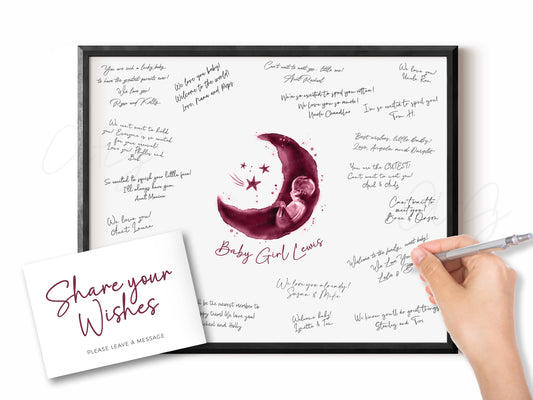 You are such a lucky baby
to have the greatest parents ever!
We love you!
Ross and Kelly
We love you baby!
Welcome to the world!
Love, Nana and Pops
Can't wait to meet you, little one!
Aunt Rachael
We love you!
Uncle Ron
We're so excited to spoil you rotten!
We love you so much!
Uncle Chandler
I'm so excited to spoil you!
Tom H.
We can't wait to hold
you! Everyone is so excited
for your arrival!
Love you! Phyllis and
Bob
Best wishes, little baby!
Love, Angela and Dwight
So excited to squish your little face!
I'll always love you
Aunt Monica
You are the CUTEST!
Can't wait to meet you!
And & Andy
Can't wait to
meet you!
Bree & Orson
We love you!
Aunt Laura
Baby Girl Lewis
Welcome to the family, sweet baby!
We Love You
Lola &
We love you already!
Susan & Mike
be the newest member to
love you!
and Holly
Welcome baby!
Lynette & Tom
We know you'll do great things!
Stanley and Teri
Share your
Wishes
PLEASE LEAVE A MESSAGE